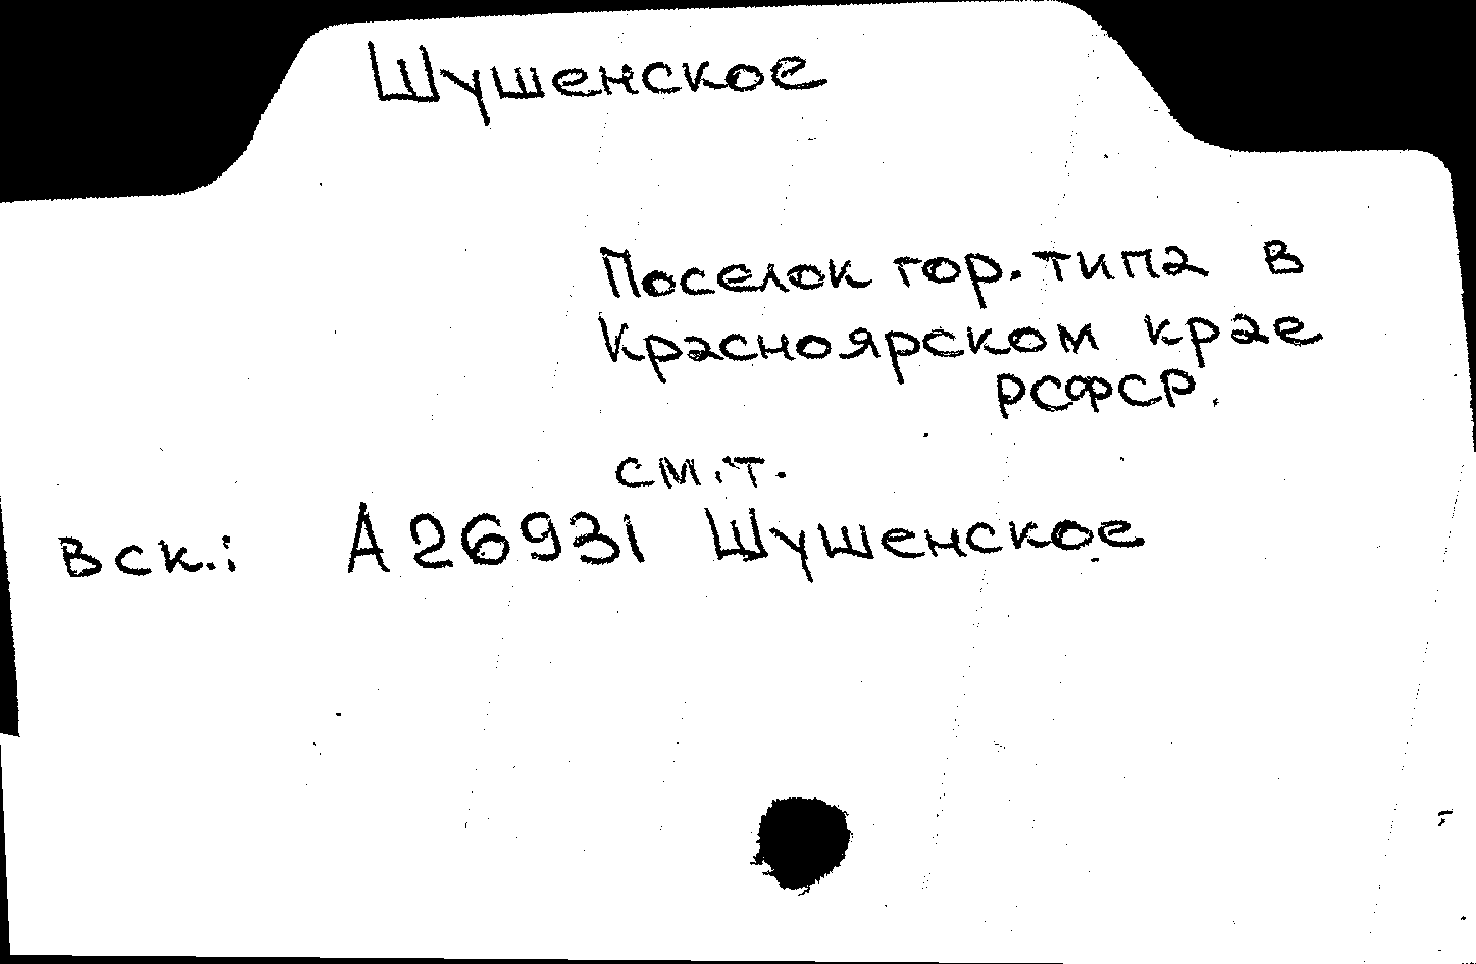 Шушенское
Поселок гор. типа в
Красноярском крае
РСФСР.
см. т.
вск.: А26931 Шушенское